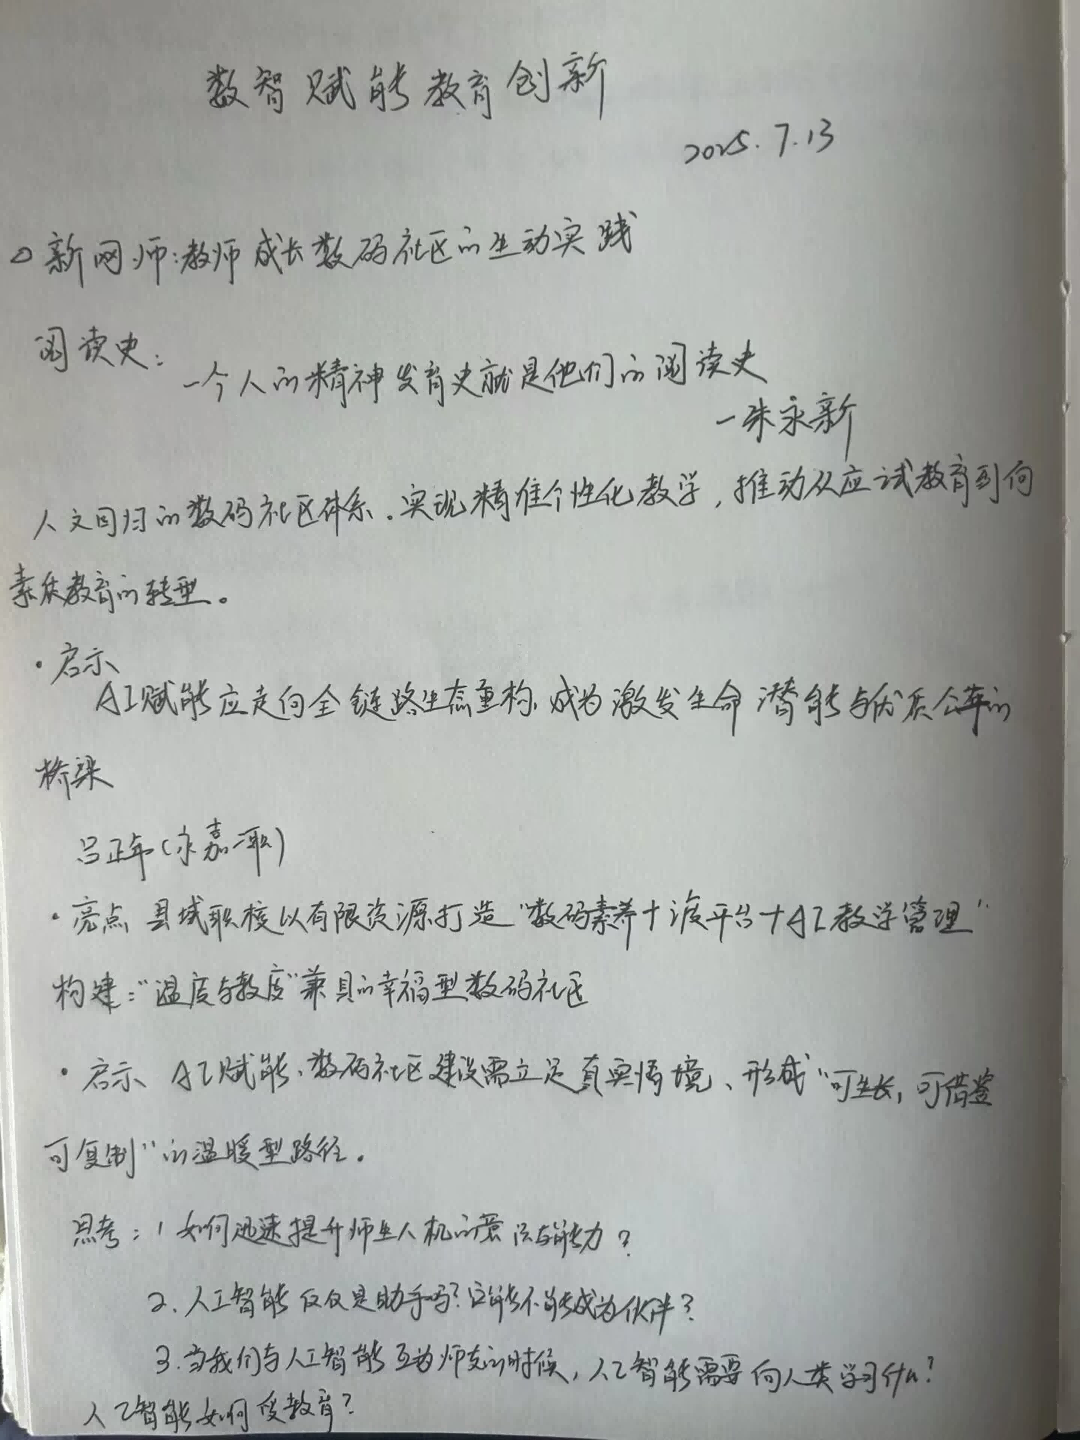 数智赋能教育创新
2025.7.13
新网师:教师成长数码社区的生动实践
阅读史:
一个人的精神发育史就是他们的阅读史
—朱永新
人文回归的数码社区体系.实现精准个性化教学,推动从应试教育到向
素质教育的转型。
·启示
AI赋能应走向全链路生态重构,成为激发生命潜能与优质公平的
桥梁
吕正年(永嘉一职)
·亮点 县域职校以有限资源打造“数码素养+ 平台+AI教学管理”
构建:“温度与数度”兼具的幸福型数码社区
·启示、AI赋能、数码社区建设需立足真实情境、形成“可生长,可借鉴
可复制”的温暖型路径.
思考:1如何迅速提升师生人机的意识与能力?
2.人工智能仅仅是助手吗?它能不能成为伙伴?
3.当我们与人工智能互为师友的时候,人工智能需要向人类学习什么?
人工智能如何受教育?